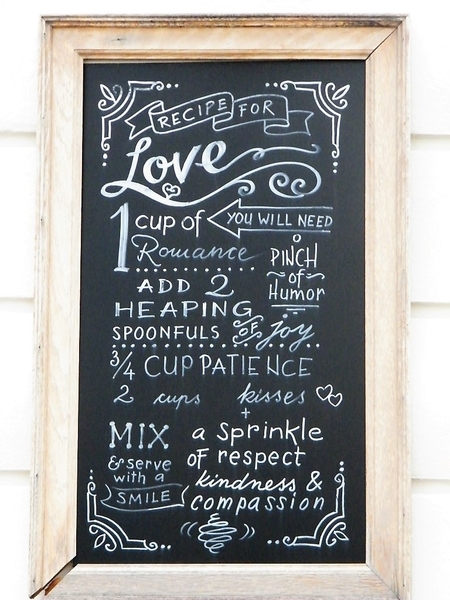 RECIPE FOR
Love
1 cup of YOU WILL NEED
Romance
PINCH
of
Humor
ADD 2
HEAPING
SPOONFULS OF joy
3/4 CUP PATIENCE
2 cups kisses
+
MIX
& serve
with a
SMILE
a sprinkle
of respect
kindness &
compassion